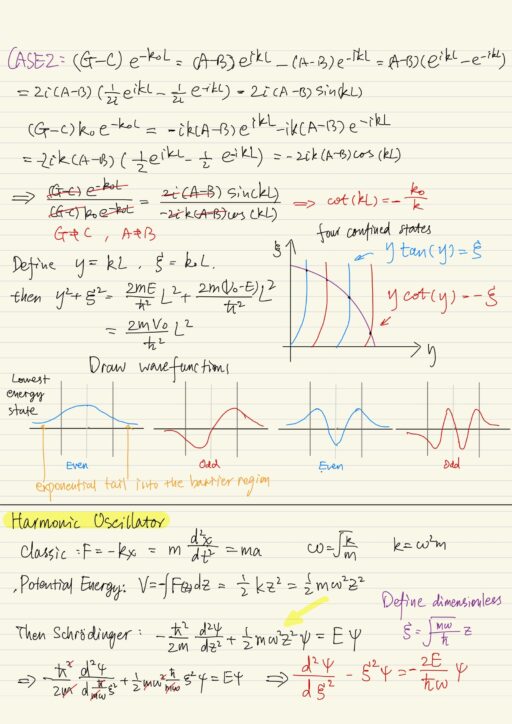 CASE2: (G-C) e^{-k₀L} = (A-B) e^{ikL} - (A-B) e^{-ikL} = (A-B)(e^{ikL} - e^{-ikL})
= 2i(A-B) ( 1/2i e^{ikL} - 1/2i e^{-ikL} ) = 2i(A-B) sin(kL)
(G-C) k₀ e^{-k₀L} = -ik(A-B) e^{ikL} - ik(A-B) e^{-ikL}
= -2ik(A-B) ( 1/2 e^{ikL} - 1/2 e^{-ikL} ) = -2ik(A-B) cos(kL)
⇒ (G-C) e^{-k₀L} / (G-C) k₀ e^{-k₀L} = 2i(A-B) sin(kL) / -2ik(A-B) cos(kL) ⇒ cot(kL) = - k₀/k
G≠C, A≠B
four confined states
Define y = kL, ξ = k₀L.
ξ
y tan(y) = ξ
then y² + ξ² = 2mE/ħ² L² + 2m(V₀-E)/ħ² L²
y cot(y) = -ξ
= 2mV₀/ħ² L²
y
Draw wavefunctions
Lowest
energy
state
Even Odd Even Odd
exponential tail into the barrier region
Harmonic Oscillator
Classic: F = -kx = m d²x/dt² = ma ω = √(k/m) k = ω²m
Potential Energy: V = -∫F(z)dz = 1/2 kz² = 1/2 mω²z²
Define dimensionless
ξ = √(mω/ħ) z
Then Schrödinger: - ħ²/2m d²ψ/dz² + 1/2 mω²z²ψ = Eψ
⇒ - ħ²/2m d²ψ/d ħ/mω ξ² + 1/2 mω² ħ/mω ξ²ψ = Eψ ⇒ d²ψ/dξ² - ξ²ψ = - 2E/ħω ψ